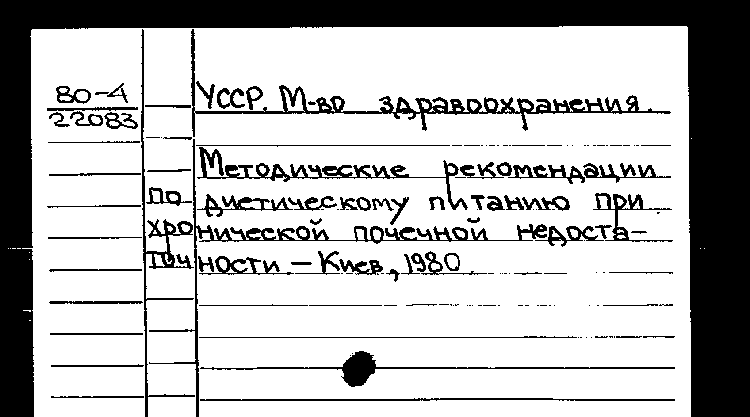 80-4
22083
УССР. М-во здравоохранения.
Методические рекомендации
по диетическому питанию при
хронической почечной недоста-
точности. – Киев, 1980.